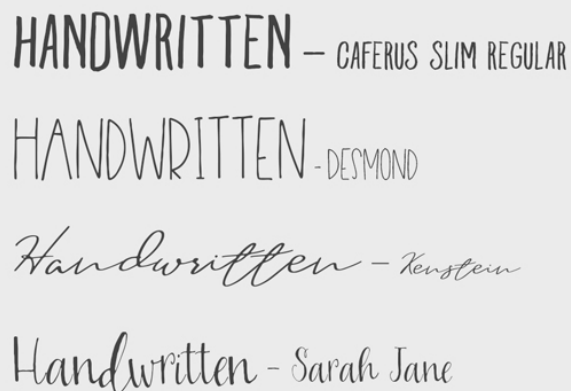 HANDWRITTEN – CAFERUS SLIM REGULAR
HANDWRITTEN - DESMOND
Handwritten – Kenstein
Handwritten - Sarah Jane